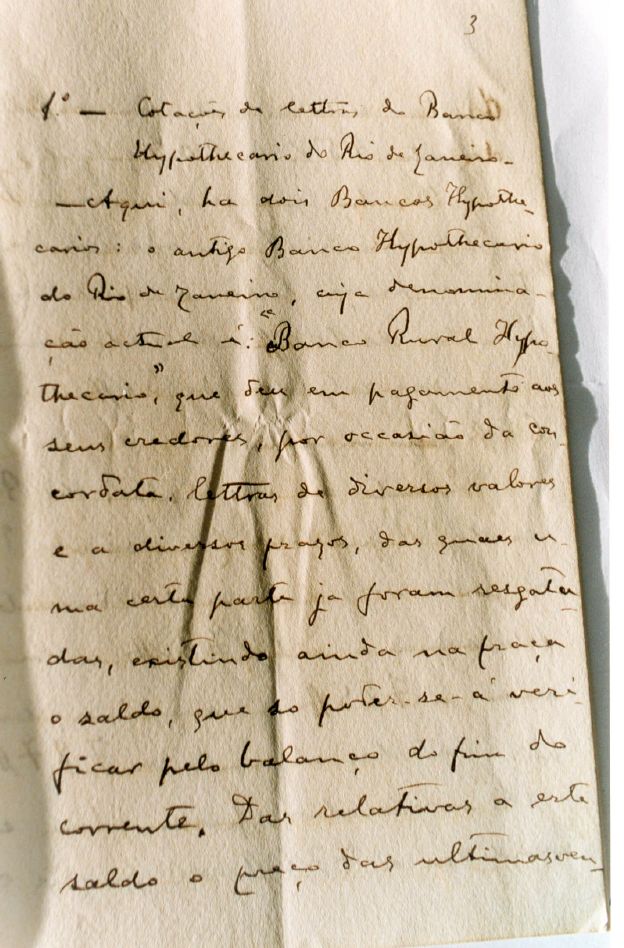 3
1º — Cotações de lettras do Banco
Hypothecario do Rio de Janeiro.
— Aqui, ha dois Bancos Hypothe-
carios: o antigo Banco Hypothecario
do Rio de Janeiro, cuja denomina-
ção actual é: "Banco Rural Hypo-
thecario", que deu em pagamento aos
seus credores, por occasião da con-
cordata, lettras de diversos valores
e a diversos prazos, das quaes u-
ma certa parte ja foram resgata-
das, existindo ainda na praça
o saldo, que so poder-se-á veri-
ficar pelo balanço do fim do
corrente. Das relativas a este
saldo o preço das ultimas ven-